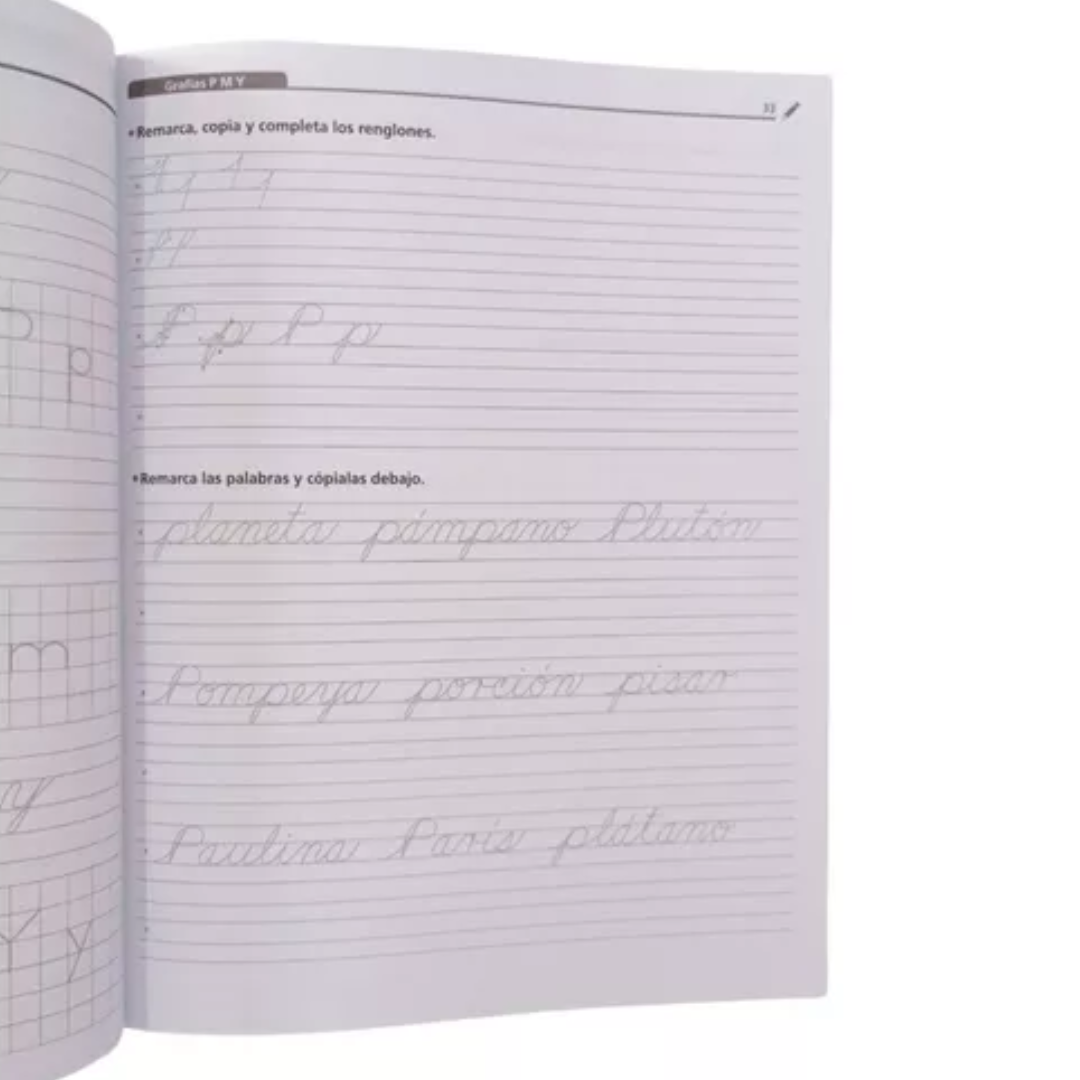 Grafías P M Y
33
• Remarca, copia y completa los renglones.
P p P p
• Remarca las palabras y cópialas debajo.
planeta pámpano Plutón
Pompeya porción pisar
Paulina París plátano
p
m
y
Y y